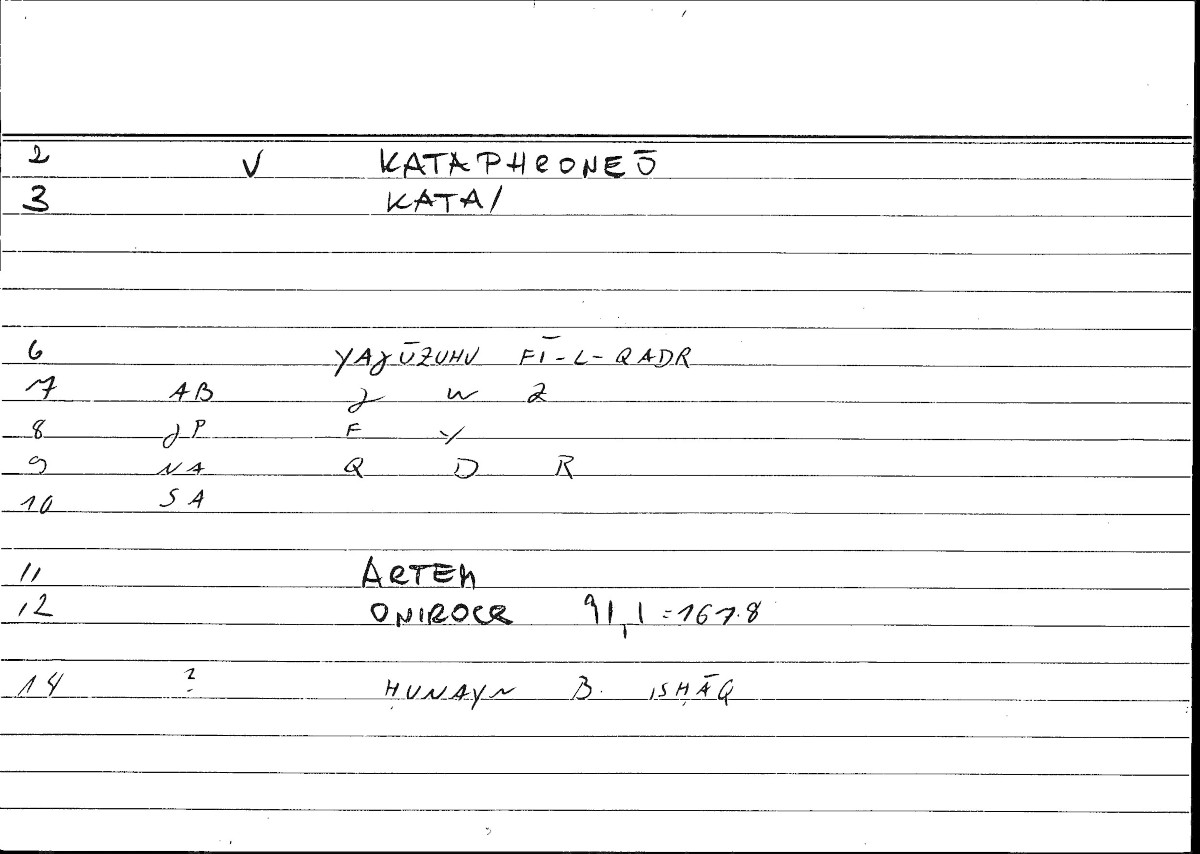 2 V KATAPHRONEŌ
3 KATA/
6 YAJŪZUHU FĪ-L-QADR
7 AB J W Z
8 JP F Y
9 NA Q D R
10 SA
11 ARTEM
12 ONIROCR 91,1=167.8
14 ? ḤUNAYN B. ISḤĀQ